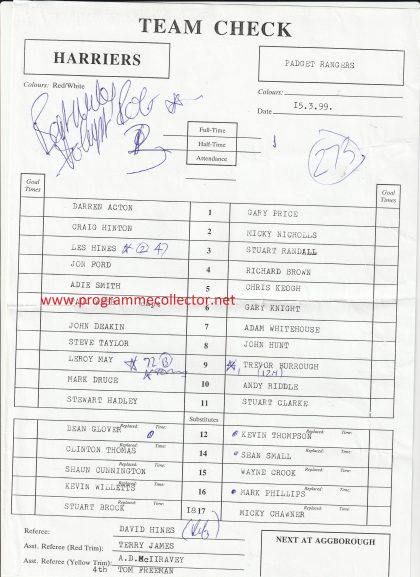 TEAM CHECK
HARRIERS
PADGET RANGERS
Colours: Red/White
Colours:
Date 15.3.99.
Full-Time
Half-Time
Attendance
275
Goal Times
Goal Times
DARREN ACTON 1 GARY PRICE
CRAIG HINTON 2 MICKY NICHOLLS
LES HINES 3 STUART RANDALL
JON FORD 4 RICHARD BROWN
ADIE SMITH 5 CHRIS KEOGH
www.programmecollector.net
6 GARY KNIGHT
JOHN DEAKIN 7 ADAM WHITEHOUSE
STEVE TAYLOR 8 JOHN HUNT
LEROY MAY 9 TREVOR BURROUGH
MARK DRUCE 10 ANDY RIDDLE
STEWART HADLEY 11 STUART CLARKE
Substitutes
DEAN GLOVER Replaced: Time: 12 KEVIN THOMPSON Replaced: Time:
CLINTON THOMAS Replaced: Time: 14 SEAN SMALL Replaced: Time:
SHAUN CUNNINGTON Replaced: Time: 15 WAYNE CROOK Replaced: Time:
KEVIN WILLETTS Replaced: Time: 16 MARK PHILLIPS Replaced: Time:
STUART BROCK 1817 MICKY CHAWNER
Referee: DAVID HINES
Asst. Referee (Red Trim): TERRY JAMES
Asst. Referee (Yellow Trim): A.D.McIIRAVEY
4th TOM FREEMAN
NEXT AT AGGBOROUGH